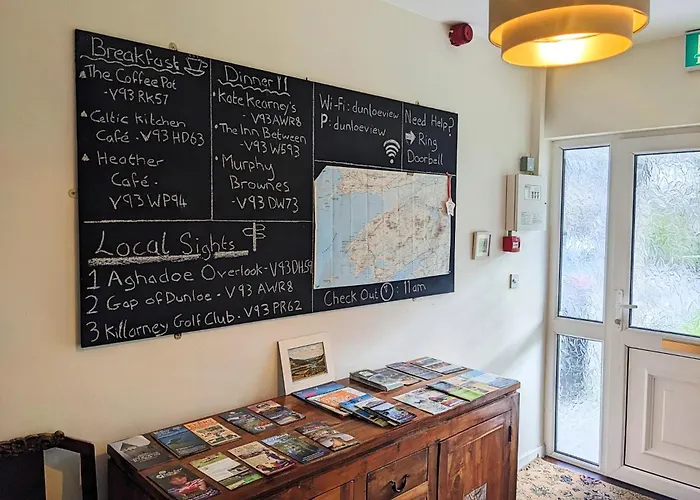 Breakfast
The Coffee Pot
- V93 RK57
Celtic Kitchen
Café - V93 HD63
Heather
Café -
V93 WP94
Dinner
Kate Kearney's
- V93 AWR8
The Inn Between
- V93 W593
Murphy
Brownes
- V93 DW73
Wi-Fi: dunloeview
P: dunloeview
Need Help?
Ring
Doorbell
Local Sights
1 Aghadoe Overlook - V93 DH59
2 Gap of Dunloe - V93 AWR8
3 Killarney Golf Club - V93 PR62
Check Out : 11am